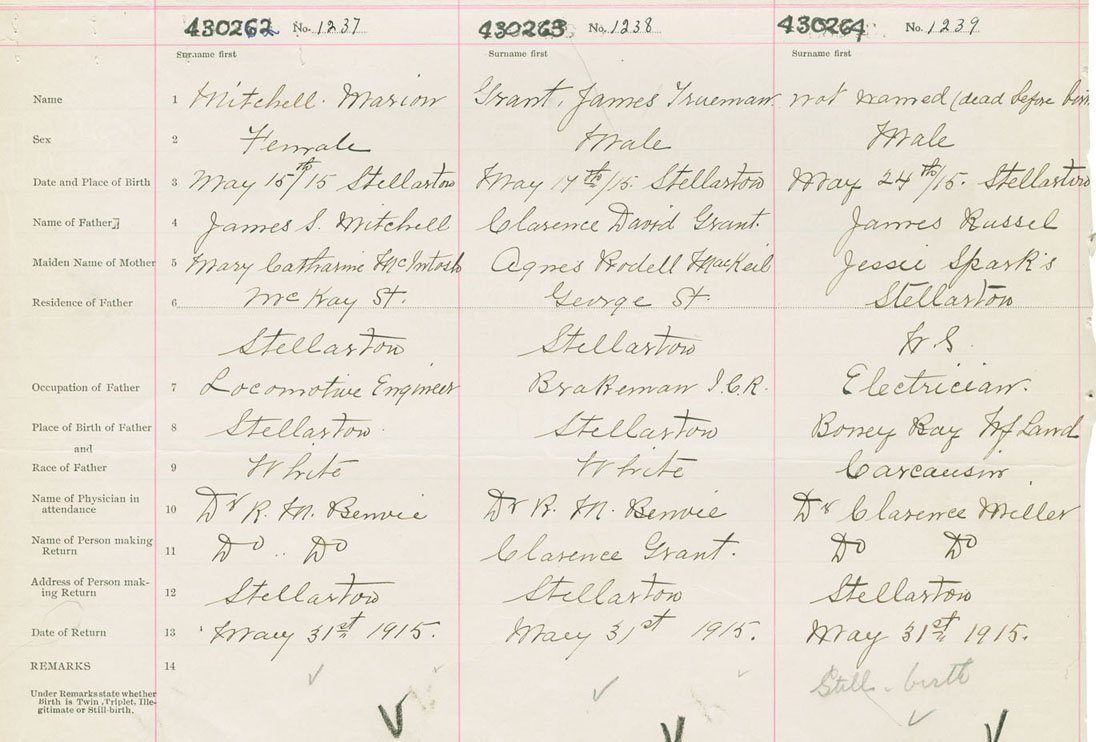 430262 No. 1237 430263 No. 1238 430264 No. 1239
Surname first Surname first Surname first
Name 1 Mitchell. Marion Grant, James Trueman not named (dead before birth
Sex 2 Female Male Male
Date and Place of Birth 3 May 15th/15 Stellarton May 17th/15. Stellarton May 24th/15. Stellarton
Name of Father 4 James S. Mitchell Clarence David Grant. James Russel
Maiden Name of Mother 5 Mary Catharine McIntosh Agnes Rodell MacKeil Jessie Spark's
Residence of Father 6 McKay St. George St. Stellarton
Stellarton Stellarton N.S.
Occupation of Father 7 Locomotive Engineer Brakeman I.C.R. Electrician.
Place of Birth of Father 8 Stellarton Stellarton Boney Bay Nf Land
and
Race of Father 9 White White Carcausin
Name of Physician in
attendance 10 Dr R. M. Benvie Dr R. M. Benvie Dr Clarence Miller
Name of Person making
Return 11 Do .. Do Clarence Grant. Do Do
Address of Person mak-
ing Return 12 Stellarton Stellarton Stellarton
Date of Return 13 May 31st 1915. May 31st 1915. May 31st 1915.
REMARKS 14 Still-birth
Under Remarks state whether
Birth is Twin, Triplet, Ille-
gitimate or Still-birth.